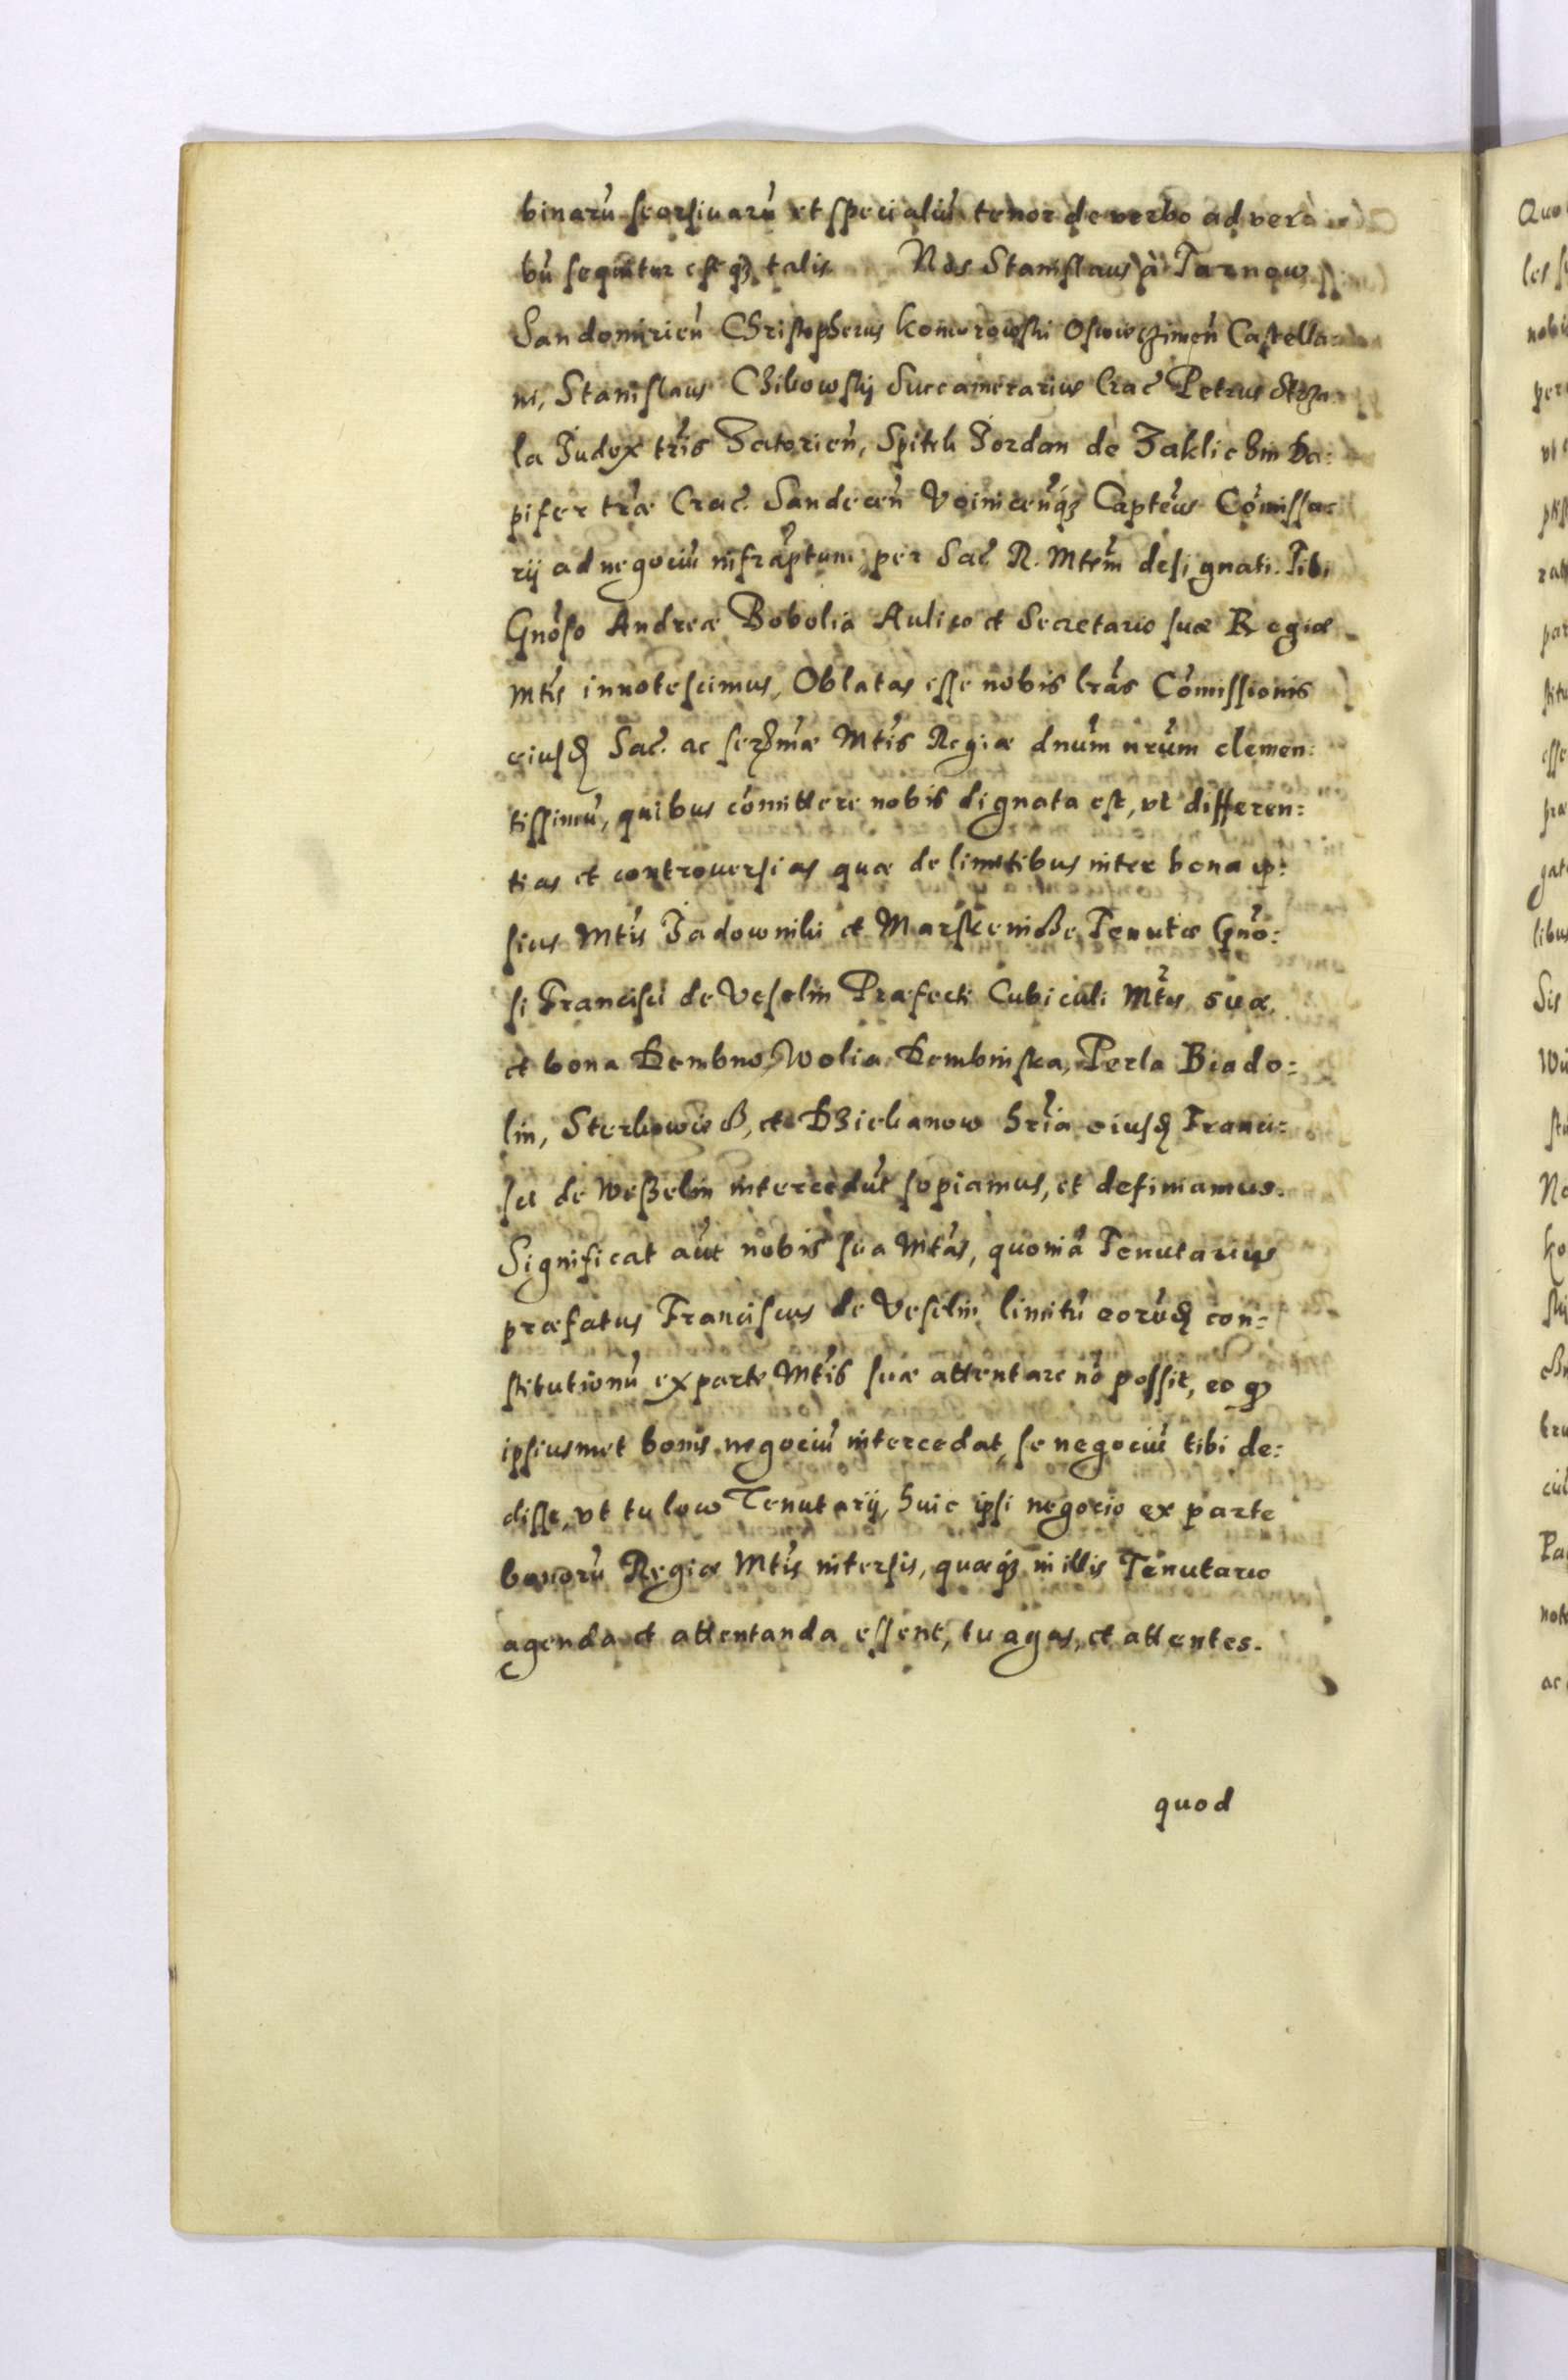 binarũ seorsivarũ et specialiũ tenor de verbo ad ver
bũ sequitur estq₃ talis Nos Stanislaus à Tarnow
Sandomirieñ Christopherus Komorowski Oswieczimeñ Castella
ni, Stanislaus Chikowskij Succamerarius Crac̃ Petrus Strza
la Judex tr̃is Zatorieñ, Spitek Jordan de Zakliczin Da:
pifer tr̃æ Crac̃. Sandeceñ Voiniceñq₃ Capt̃eus Com̃issa
rij ad negociũ infrãptum per Sac̃ R. Mt̃em designati. Tibi
Gnõso Andreæ Bobolia Aulico et Secretario suæ Regiæ
Mt̃is innotescimus, Oblatas esse nobis lr̃as Com̃issionis
eiusdꝫ Sac̃. ac serẽmæ Mt̃is Regiæ dnũm nrũm clemen:
tissimũ, quibus com̃ittere nobis dignata est, vt differen:
tias et controuersias quæ de limitibus inter bona ip:
sius Mt̃is Jadowniki et Marskenicze Tenutæ Gnõ:
si Francisci de Veselin Præfecti Cubiculi Mt̃is suæ,
et bona Dembno, Wolia Dembinska, Perla Biado:
lin, Sterkowiecz, et Dziekanow hr̃ia eiusdꝫ Franci:
sci de Weßelin intercedũt sopiamus, et definiamus.
Significat aũt nobis sua Mt̃as, quoniã Tenutarius
præfatus Franciscus de Veselin limitũ eorũdꝫ con:
stitutionũ ex parte Mt̃is suæ attentare nõ possit, eo qꝫ
ipsiusmet bonis negociũ intercedat, se negociũ tibi de:
disse, vt tu loco Tenutarij, huic ipsi negocio ex parte
bonorũ Regiæ Mt̃is intersis, quæq₃ in illis Tenutario
agenda et attentanda essent, tu agas, et attentes.
quod